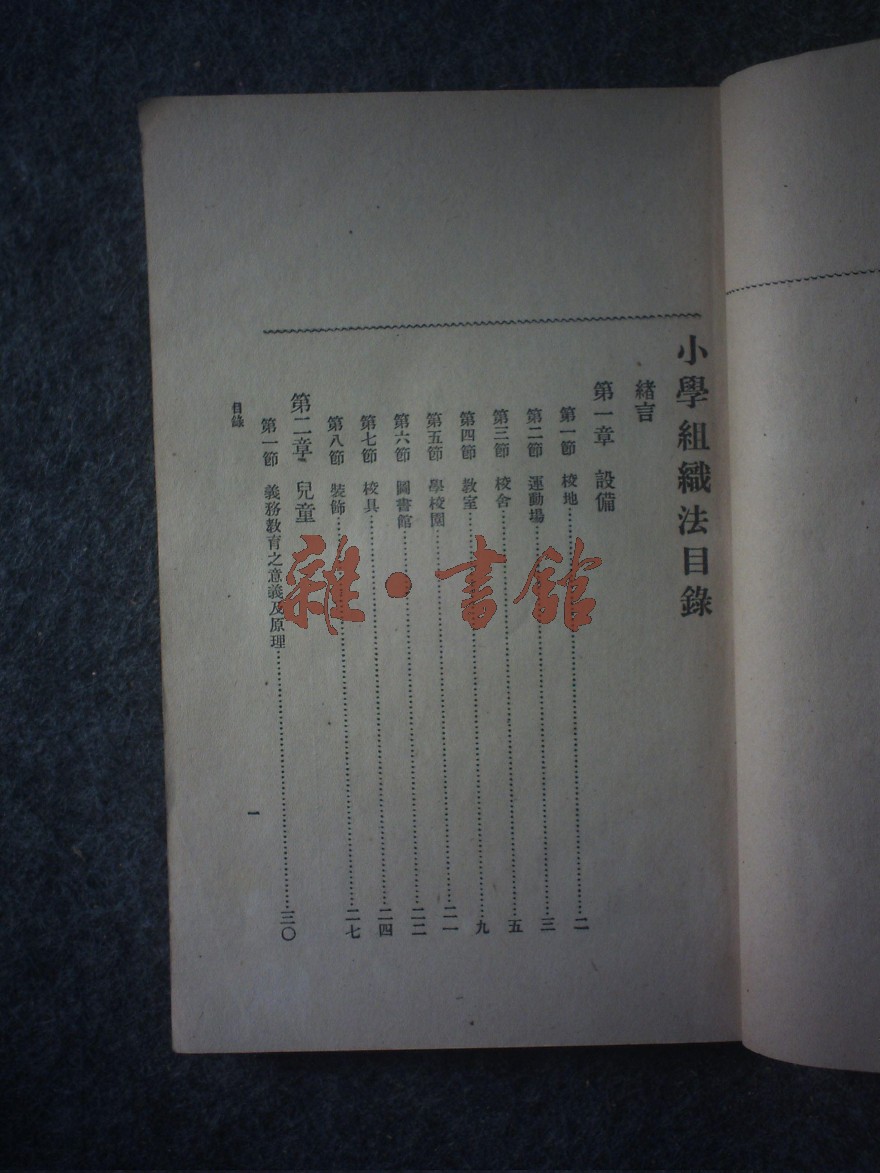 小學組織法目錄
緒言
第一章 設備
第一節 校地……二
第二節 運動場……三
第三節 校舍……五
第四節 教室……九
第五節 學校園……二一
第六節 圖書館……二二
第七節 校具……二四
第八節 裝飾……二七
第二章 兒童
第一節 義務教育之意義及原理……三〇
目錄
一
雜·書館